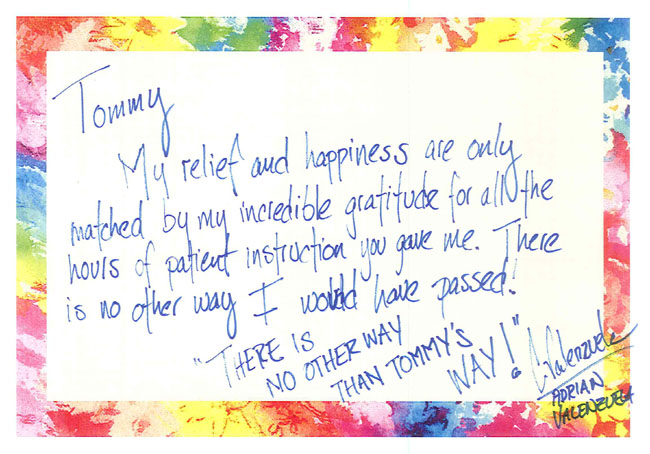 Tommy
My relief and happiness are only
matched by my incredible gratitude for all the
hours of patient instruction you gave me. There
is no other way I would have passed!
"THERE IS
NO OTHER WAY
THAN TOMMY'S
WAY!"
Valenzuela
ADRIAN
VALENZUELA